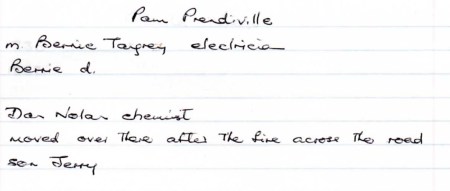 Pam Prendiville
m. Bernie Tangney electricia
Bernie d.
Dan Nolan chemist
moved over there after the fire across the road
son Jerry